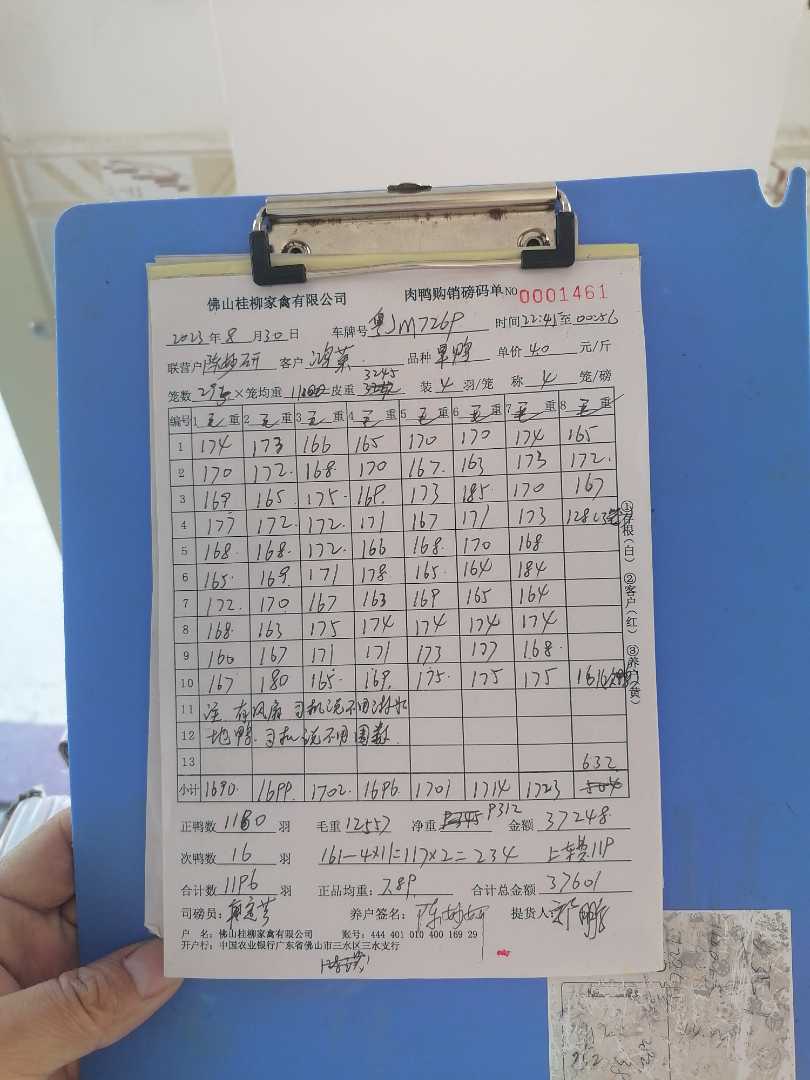 佛山桂柳家禽有限公司 肉鸭购销磅码单 NO 0001461
2023年8月30日 车牌号 粤JM726P 时间22:41至00:56
联营户 陈妙研 客户 品种 单价 40 元/斤
笼数 295 ×笼均重 1100 皮重 3245 装 4 羽/笼 称 4 笼/磅
编号 1毛重 2毛重 3毛重 4毛重 5毛重 6毛重 7毛重 8毛重
1 174 173 166 165 170 170 174 165
2 170 172 168 170 167 163 173 172
3 169 165 175 169 173 185 170 167
4 177 172 172 171 167 171 173 128
5 168 168 172 166 168 170 168
6 165 169 171 178 165 164 184
7 172 170 167 163 169 165 164
8 168 163 175 174 174 174 174
9 160 167 171 171 173 177 168
10 167 180 165 169 175 175 175 161
11 注 有风扇 司机说不用淋水
12 地鸭 司机说不用围数
13 632
小计 1690 1699 1702 1696 1701 1714 1723
正鸭数 1180 羽 毛重 12557 净重 9312 金额 37248
次鸭数 16 羽 161-4×11=117×2=234 上车费119
合计数 1196 羽 正品均重: 7.89 合计总金额 37601
司磅员: 养户签名: 提货人:
户 名: 佛山桂柳家禽有限公司 账号: 444 401 010 400 169 29
开户行: 中国农业银行广东省佛山市三水区三水支行
①存根(白) ②客户(红) ③养户(黄)